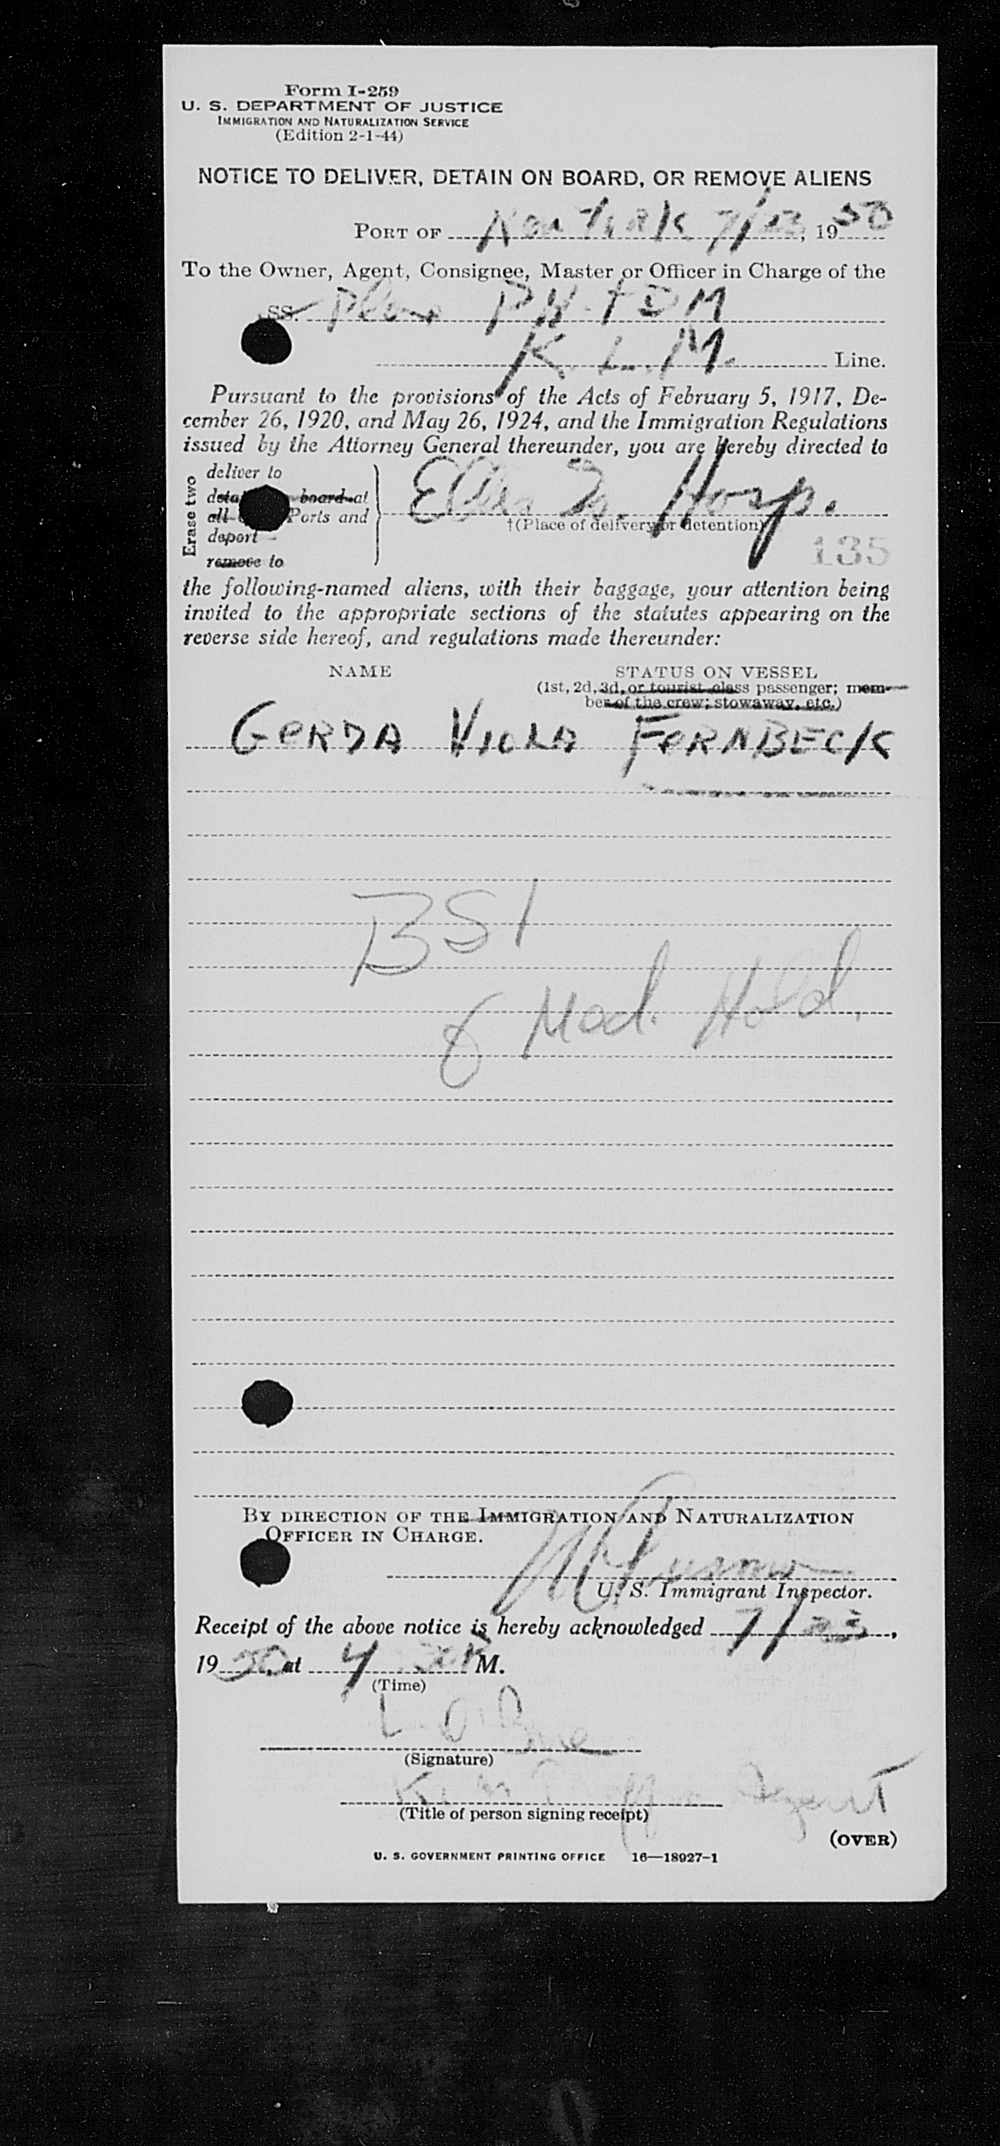 Form I-259
U. S. DEPARTMENT OF JUSTICE
IMMIGRATION AND NATURALIZATION SERVICE
(Edition 2-1-44)
NOTICE TO DELIVER, DETAIN ON BOARD, OR REMOVE ALIENS
PORT OF New York 7/23, 1950
To the Owner, Agent, Consignee, Master or Officer in Charge of the
SS. Plane PH-TDM
K. L. M. Line.
Pursuant to the provisions of the Acts of February 5, 1917, De-
cember 26, 1920, and May 26, 1924, and the Immigration Regulations
issued by the Attorney General thereunder, you are hereby directed to
Erase two
deliver to
board at
all Ports and
deport
remove to
Ellis Is. Hosp.
†(Place of delivery or detention)
135
the following-named aliens, with their baggage, your attention being
invited to the appropriate sections of the statutes appearing on the
reverse side hereof, and regulations made thereunder:
NAME STATUS ON VESSEL
(1st, 2d, 3d, or tourist class passenger; mem-
ber of the crew; stowaway, etc.)
GERDA VIOLA FERNBECK
BSI
& Med. Hold.
BY DIRECTION OF THE IMMIGRATION AND NATURALIZATION
OFFICER IN CHARGE.
U. S. Immigrant Inspector.
Receipt of the above notice is hereby acknowledged 7/23,
1950 at 4 M.
(Time)
(Signature)
Agent
(Title of person signing receipt)
(OVER)
U. S. GOVERNMENT PRINTING OFFICE 16—18927-1